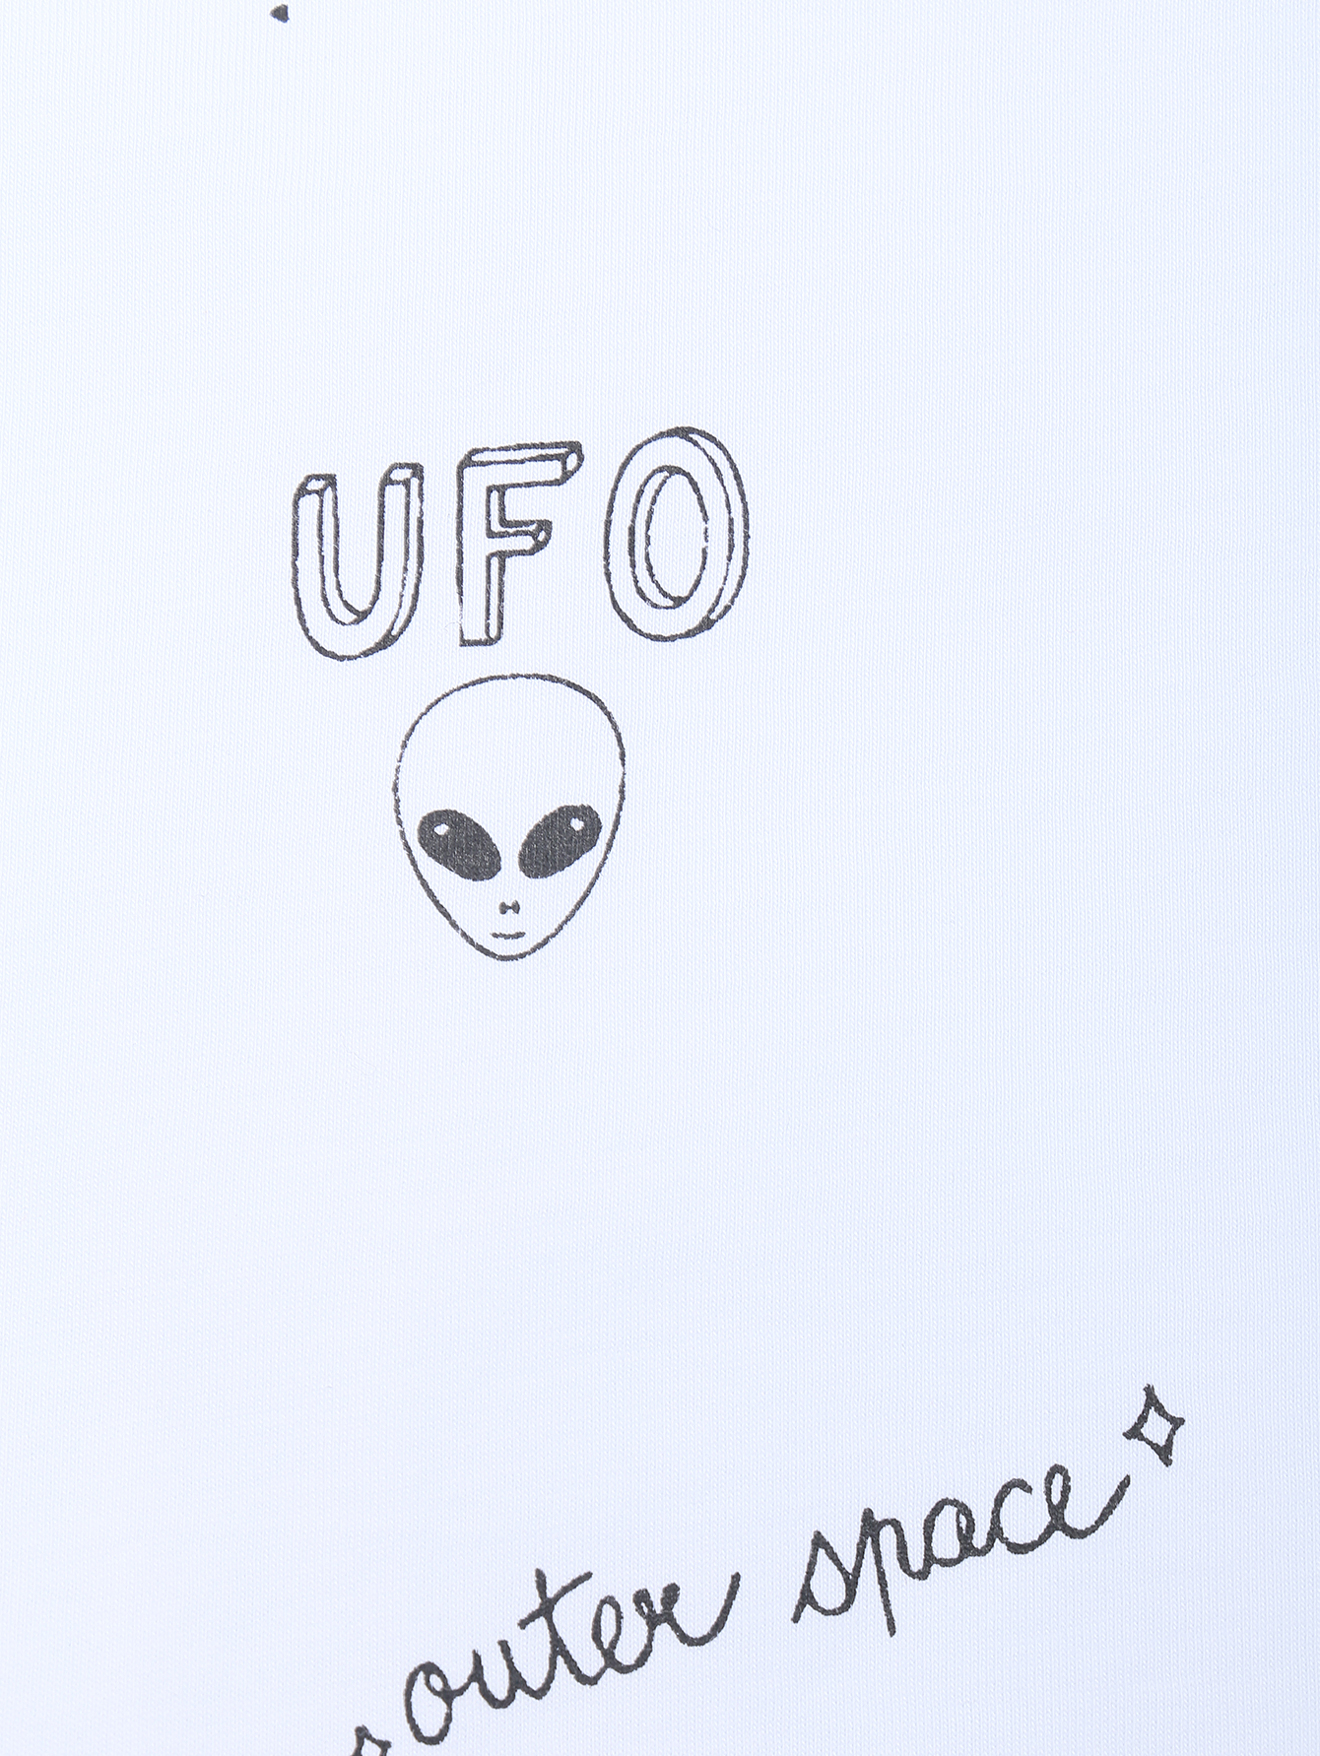 UFO
outer space